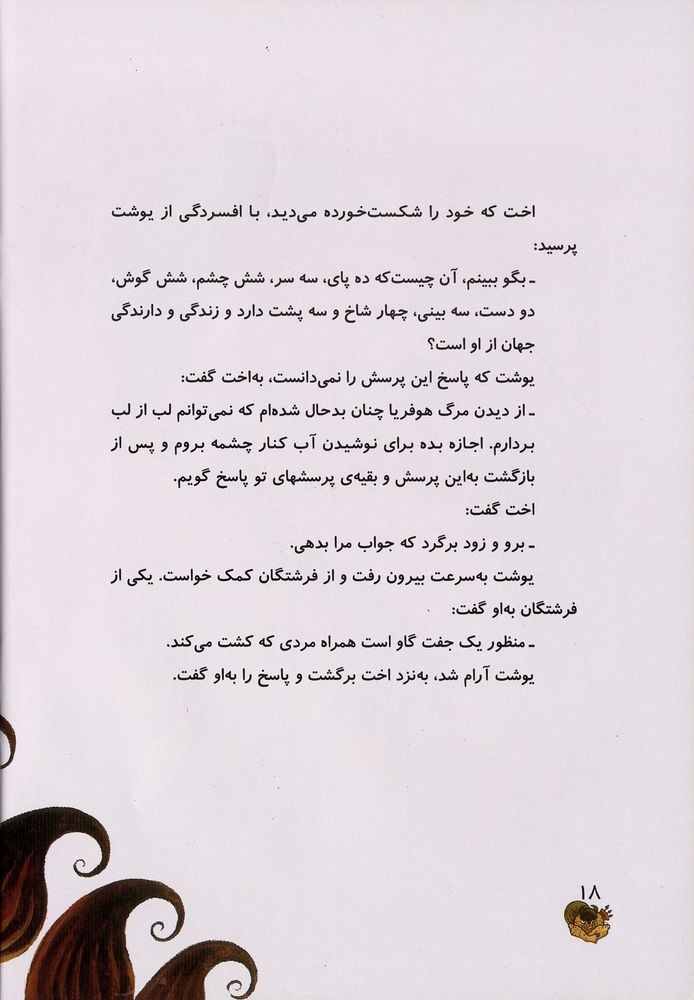 اخت که خود را شکست‌خورده می‌دید، با افسردگی از یوشت
پرسید:
ـ بگو ببینم، آن چیست‌که ده پای، سه سر، شش چشم، شش گوش،
دو دست، سه بینی، چهار شاخ و سه پشت دارد و زندگی و دارندگی
جهان از او است؟
یوشت که پاسخ این پرسش را نمی‌دانست، به‌اخت گفت:
ـ از دیدن مرگ هوفریا چنان بدحال شده‌ام که نمی‌توانم لب از لب
بردارم. اجازه بده برای نوشیدن آب کنار چشمه بروم و پس از
بازگشت به‌این پرسش و بقیه‌ی پرسشهای تو پاسخ گویم.
اخت گفت:
ـ برو و زود برگرد که جواب مرا بدهی.
یوشت به‌سرعت بیرون رفت و از فرشتگان کمک خواست. یکی از
فرشتگان به‌او گفت:
ـ منظور یک جفت گاو است همراه مردی که کشت می‌کند.
یوشت آرام شد، به‌نزد اخت برگشت و پاسخ را به‌او گفت.
۱۸